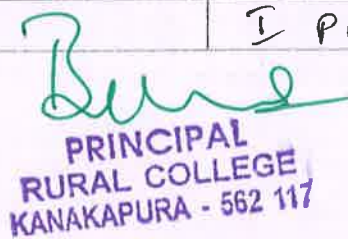 I P
PRINCIPAL
RURAL COLLEGE
KANAKAPURA - 562 117